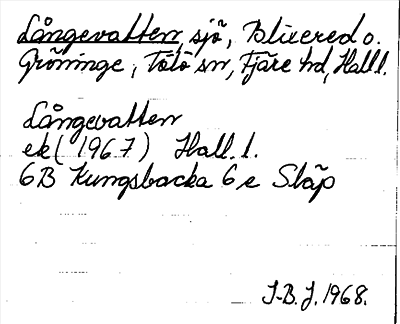 Långevatten, sjö, Blixered o.
Gröninge, Tölö sn, Fjäre hd, Hall l.
Långevatten
ek (1967) Hall. l.
6B Kungsbacka 6e Släp
J-B. J. 1968.